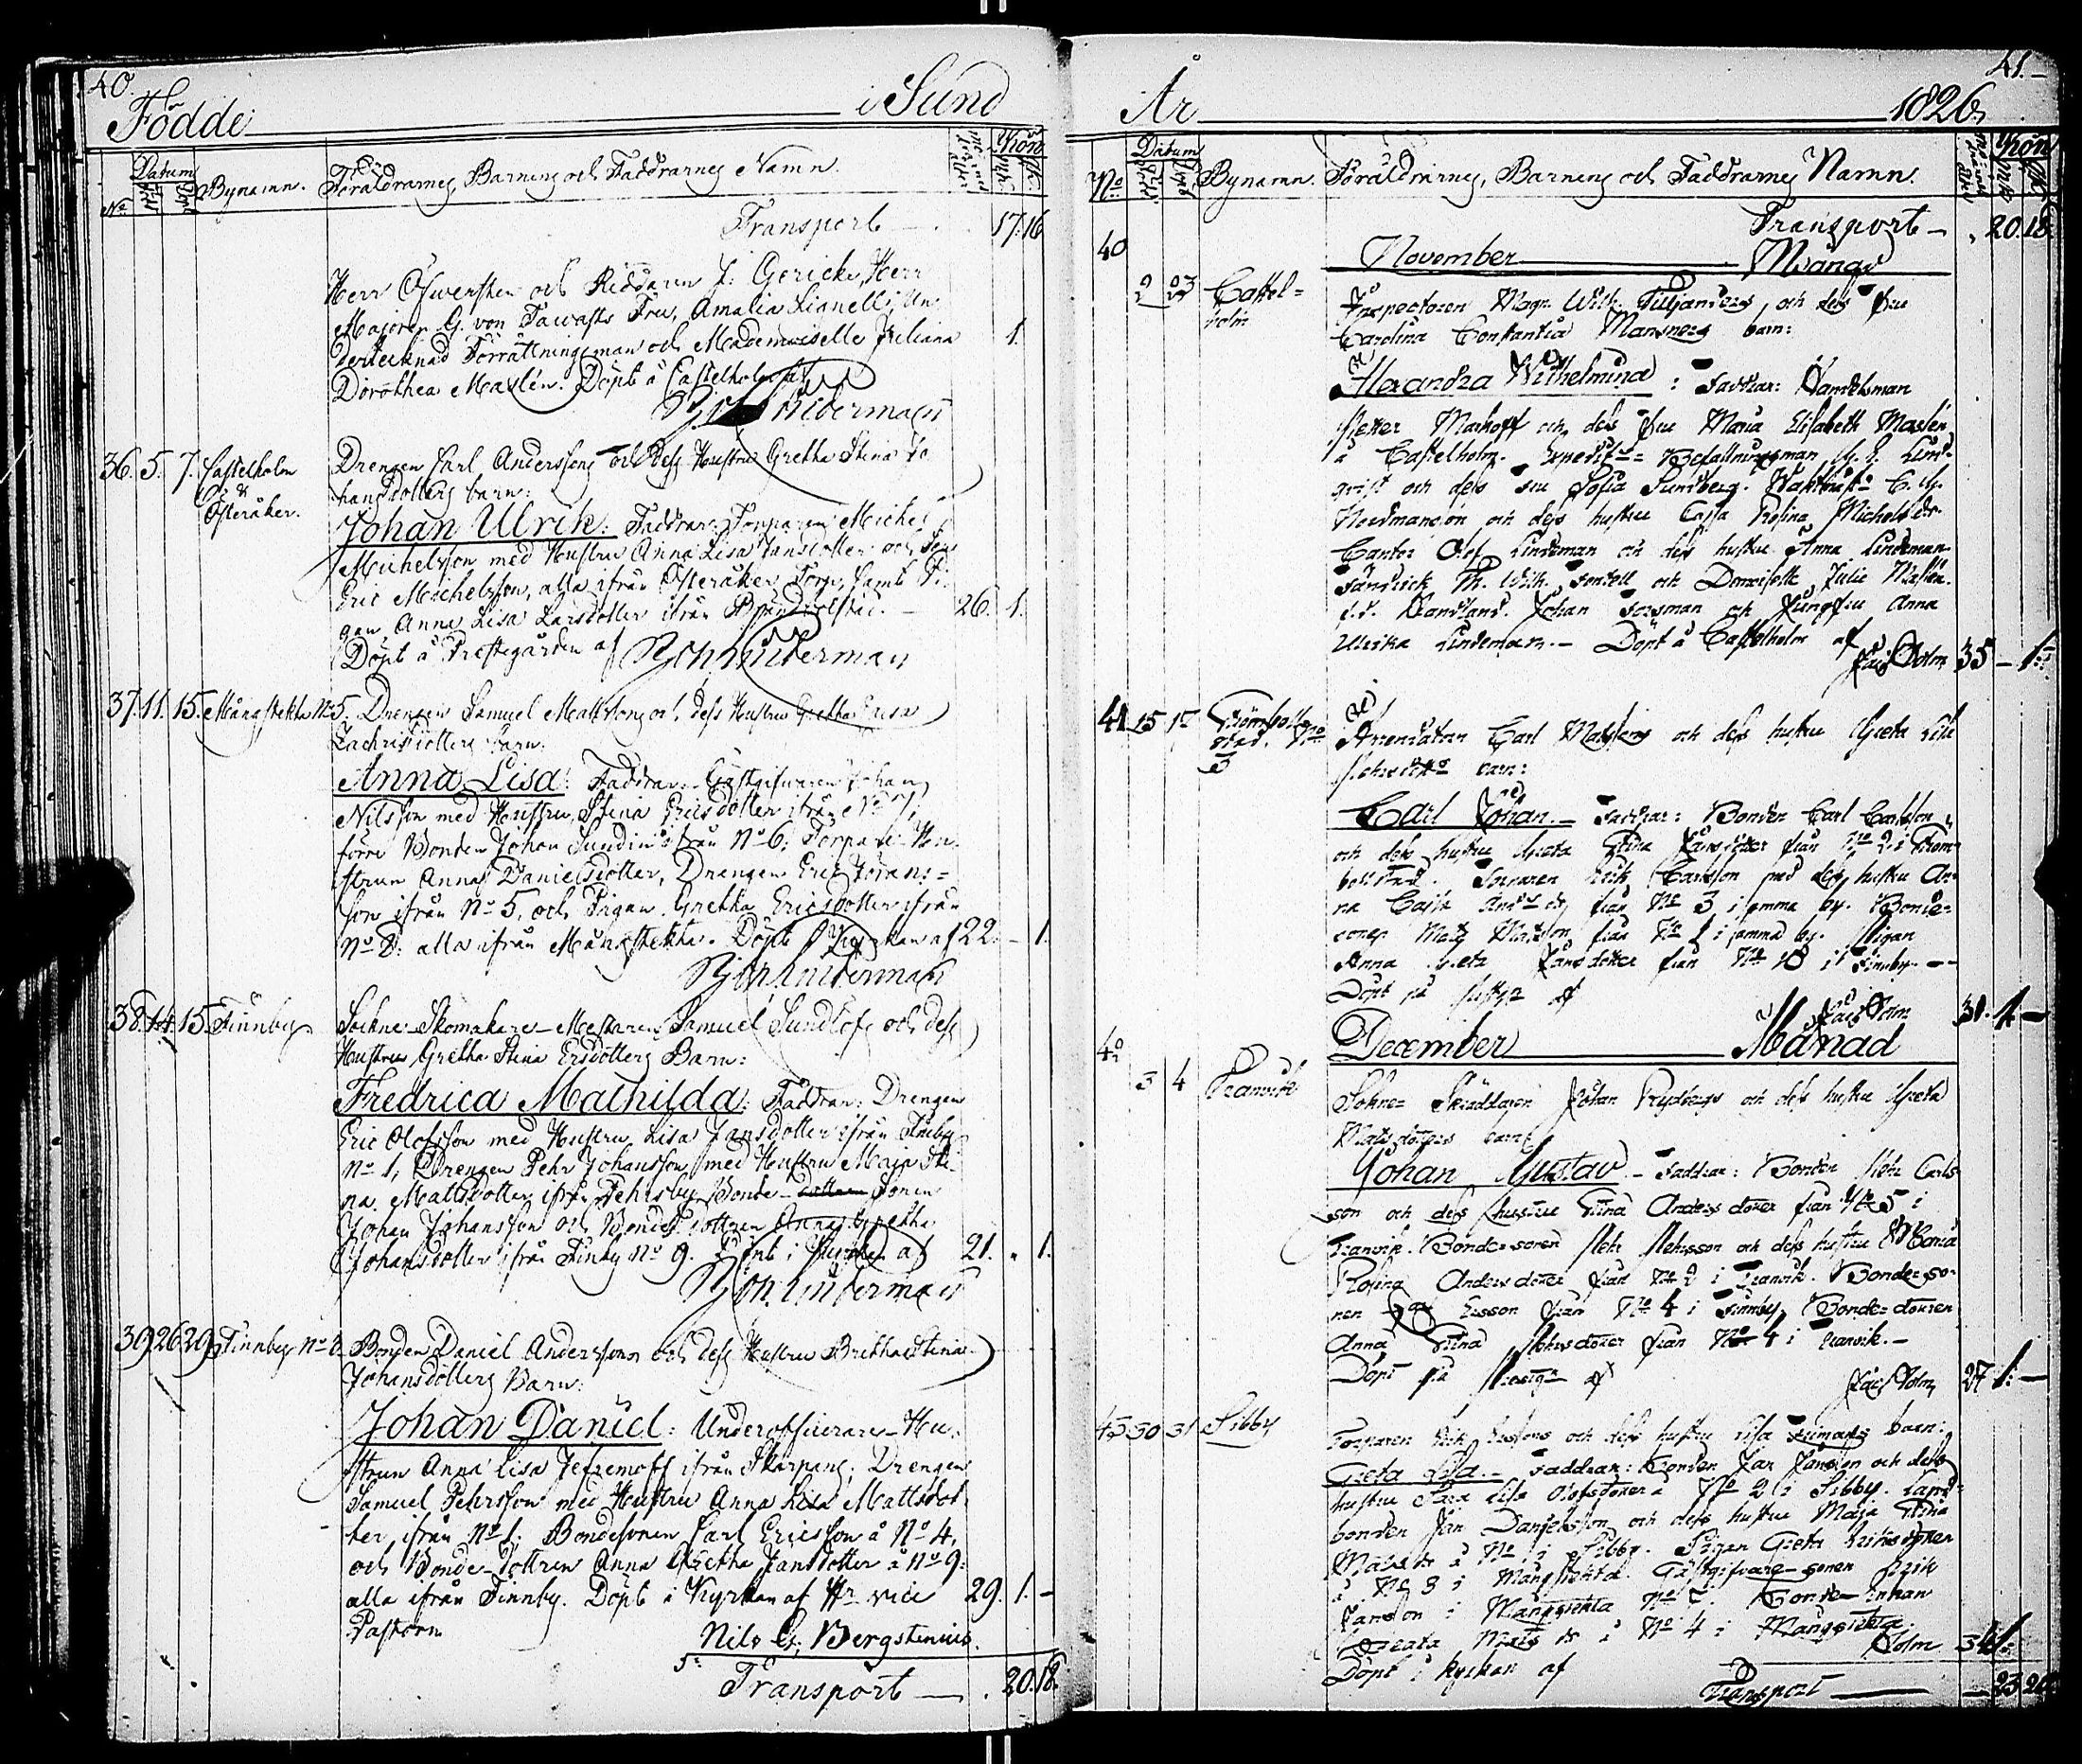 40.
Födde i Sund
No Datum Bynamn. Föräldrarnes Barnens och Faddrarnes Namn. Kön
Transport 17. 16
Herr Öfwersten och Riddaren J: Gericke, Herr
Majoren G. von Tawasts Fru, Amalia Lianelli, Un
dertecknad Förrättningsman och Mademoiselle Juliana 1.
Dorothea Maxlén. Döpt å Castelholm af
36. 5. 7. Castelholm & Österåker. Drengen Carl Anderssons och dess Hustrus Gretha Stina Jo
hansdotters barn:
Johan Ulrik: Faddrar: Torparen Michel
Michelsson med Hustru Anna Lisa Jansdotter och
Eric Michelsson, alla ifrån Österåker Torp, samt Pi-
gan Anna Lisa Larsdotter ifrån 26. 1.
Döpt å Prestegården af
37. 11. 15. Mångstekta No 5. Drengen Samuel Mattssons och dess Hustrus Gretha Caisa
Zachrisdotters barn:
Anna Lisa: Faddrar: Gästgifwaren Johan
Nilsson med Hustru Stina Ericsdotter ifrån No 7,
förre Bonden Johan Sundin ifrån No 6: Torpare-Hu-
strun Anna Danielsdotter, Drengen Eric Jörans=
son ifrån No 5, och Pigan Gretha Ericsdotter ifrån
No 8: alla ifrån Mångstekta. Döpt i Kyrkan af 22. – 1.
38. 14. 15. Finnby Sockne-Skomakare-Mestaren Samuel Sundlöfs och dess
Hustrus Gretha Stina Ersdotters Barn:
Fredrica Mathilda: Faddrar: Drengen
Eric Olofsson med Hustru Lisa Jansdotter ifrån Finby
No 1, Drengen Pehr Johansson med Hustru Maja Sti-
na Mattsdotter ifrån Pehrsby Bonde-dottren Sonen
Johan Johansson och Bonde dottren Anna Gretha
Johansdotter ifrån Finby No 9. Döpt i Kyrkan af 21. 1.
39. 26. 29. Finnby No 3. Bonden Daniel Anderssons och dess Hustrus Bretha Stina
Johansdotters Barn:
Johan Daniel: Underofficerare-Hu-
strun Anna Lisa Jefremoff ifrån Skarpans; Drengen
Samuel Pehrsson med Hustru Anna Lisa Mattsdot
ter ifrån No 1: Bondesonen Carl Ericsson å No 4,
och Bonde-dottren Anna Gretha Jansdotter å No 9:
alla ifrån Finnby. Döpt i Kyrkan af Hr vice 29. 1. –
Pastorn
Nils G. Bergstenius.
Transport 20. 18.
41.
År 1826
No Datum Bynamn. Föräldrarnes, Barnens och Faddrarnes Namn. Kön
Transport 20. 18.
40 November Månad
2 23 Castel=holm Inspectoren Magn. Wilh. Tiljanders och dess fru
Carolina Constantia Mansners barn:
Alexandra Wilhelmina: Faddrar: Handelsman
Peter Markoff och dess fru Maria Elisabeth Maxlén
å Castelholm. Befallningsman Lind-
qvist och dess fru Sofia Sundberg.
Nordmansson och dess hustru Cajsa Rosina Michelsdr.
Cantor Olof Lindeman och dess hustru Anna Lindeman
Fändrick Fr. Wilh. Forsell och Demoiselle Julie Maxlén.
Johan Forsman och Jungfru Anna
Ulrika Lindeman.– Döpt å Castelholm af
Holm 35 – 1.
41 15 17 Strömbolstad No 3 Arrendatorn Carl Matssons och dess hustru Greta Lisa
Pehrsdotters barn:
Carl Johan.– Faddrar: Bonden Carl Carlsson
och dess hustru Greta Stina Jansdotter från No 2 i Ström-
bolstad. Torparen Erik Carlsson med dess hustru An-
na Cajsa från No 3 i samma by. Bonde-
sonen Mats Matsson från No 1 i samma by. Pigan
Anna Greta Jansdotter från No 10 i Finnby.–
Döpt på af
Holm 31. 1 –
42 December Månad
3 4 Tranvik Sokne- Skräddaren Johan Rydbergs och dess hustru Greta
Matsdotters barn
Johan Gustav – Faddrar: Bonden Petter Carls-
son och dess hustru Stina Anders dotter från No 5 i
Tranvik. Bonde-sonen Pehr Pehrsson och dess hustru Maria
Rosina Anders dotter från No 2 i Tranvik. Bonde-so-
nen Ersson från No 4 i Finnby, Bonde-dottren
Anna Stina Pehrsdotter från No 4 i Tranvik.–
Döpt på af
Holm 27 1. –
43 30 31 Sibby Torparen Erik Erssons och dess hustru Lisa barn:
Greta Lisa.– Faddrar: Bonden Jan Jansson och dess
hustru Sara Lisa Olofsdotter å No 2 i Sibby. Land-
bonden Jan Danielsson och dess hustru Maja Stina
Matsdr å No 1 i Sibby. Pigan Greta Eriksdotter
å No 3 i Mångstekta. Gästgifvare-sonen Erik
Jansson i Mångstekta No 7. Bonde-enkan
Beata Matsdr å No 4 i Mångstekta.
Döpt i kyrkan af Holm 34 1.
Transport 23 20